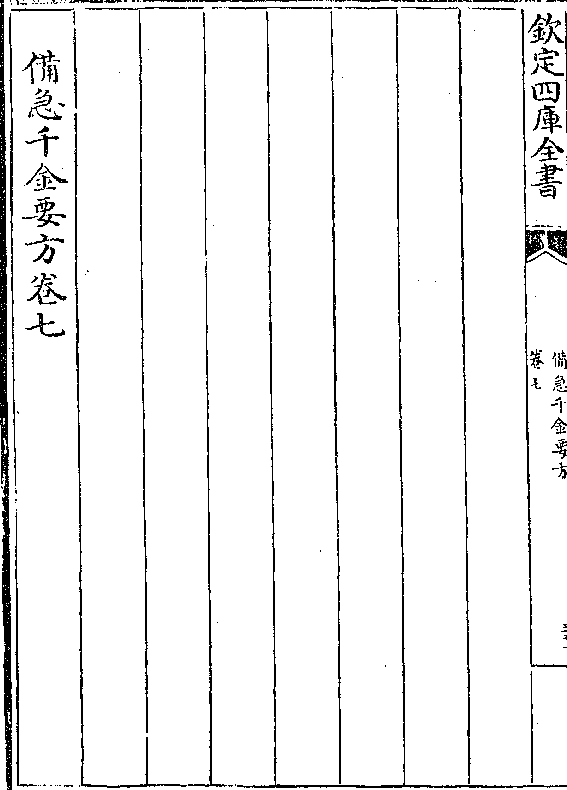 欽定四庫全書
備急千金要方
卷七
備急千金要方卷七